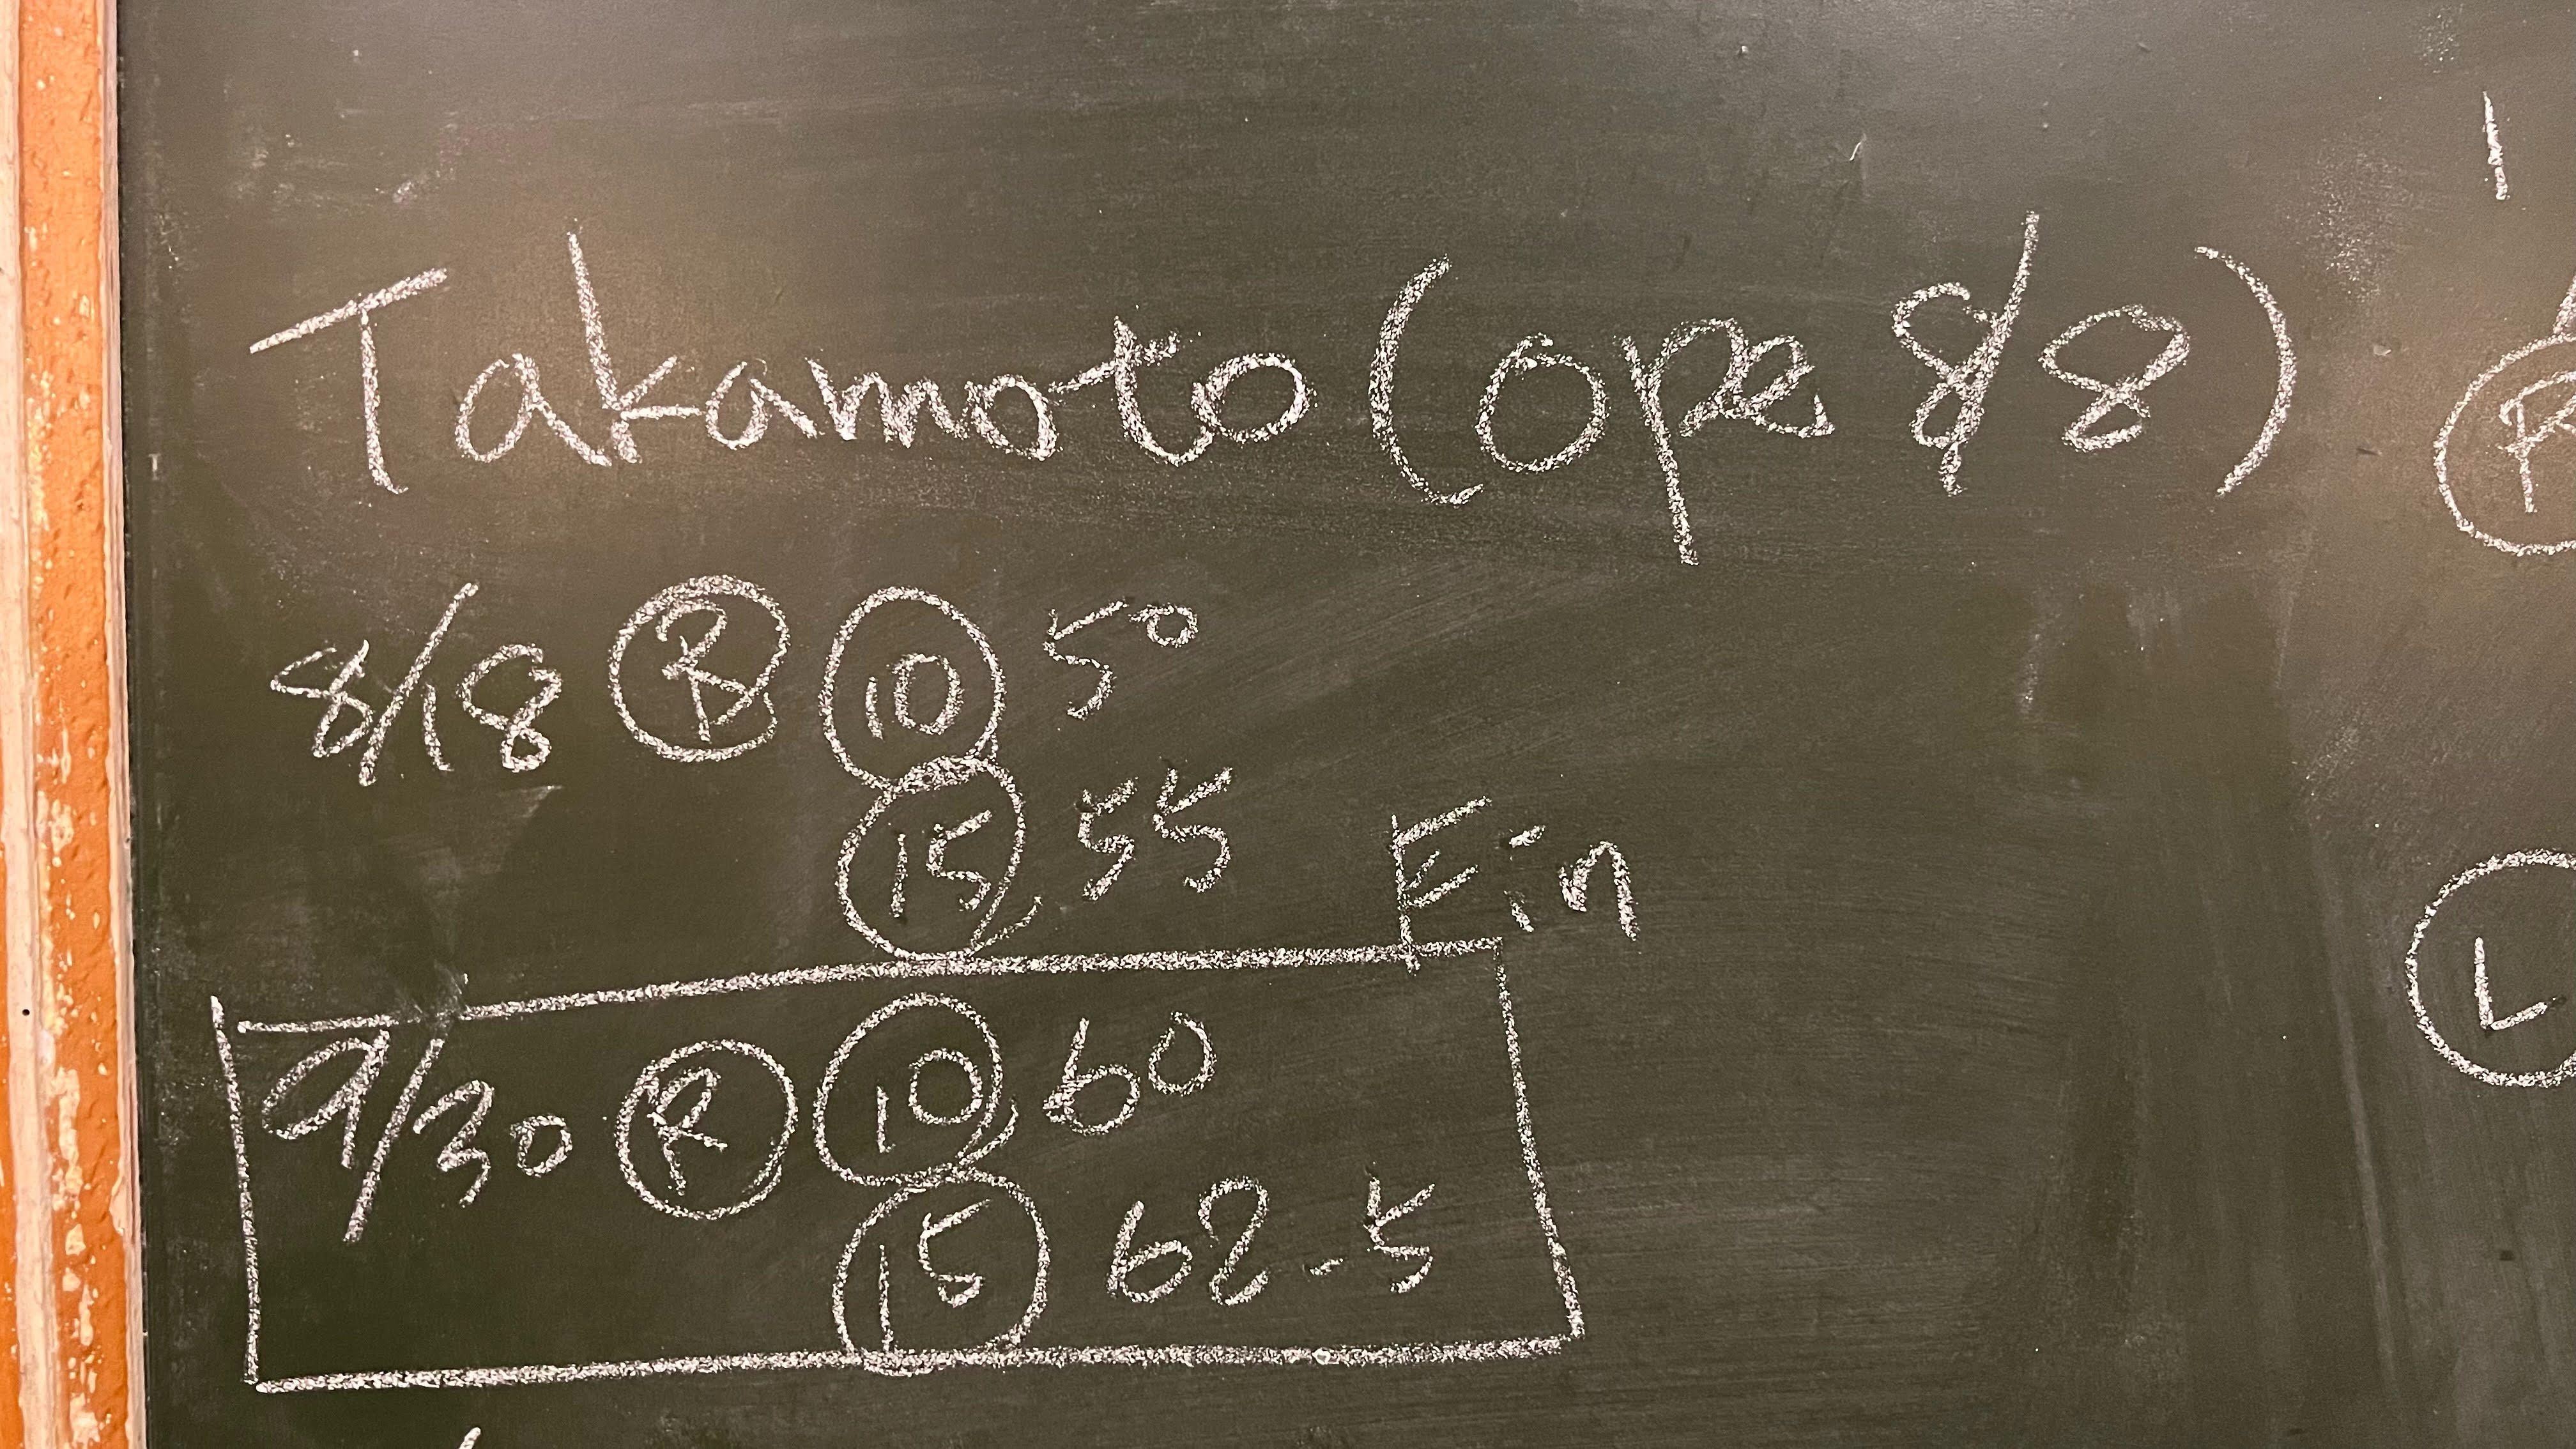 Takamoto (ope 8/8)
8/18 Ⓡ ⑩ 50
⑮, 55
Ein
9/30 Ⓡ ⑩, 60
⑮ 62.5
Ⓡ
Ⓛ